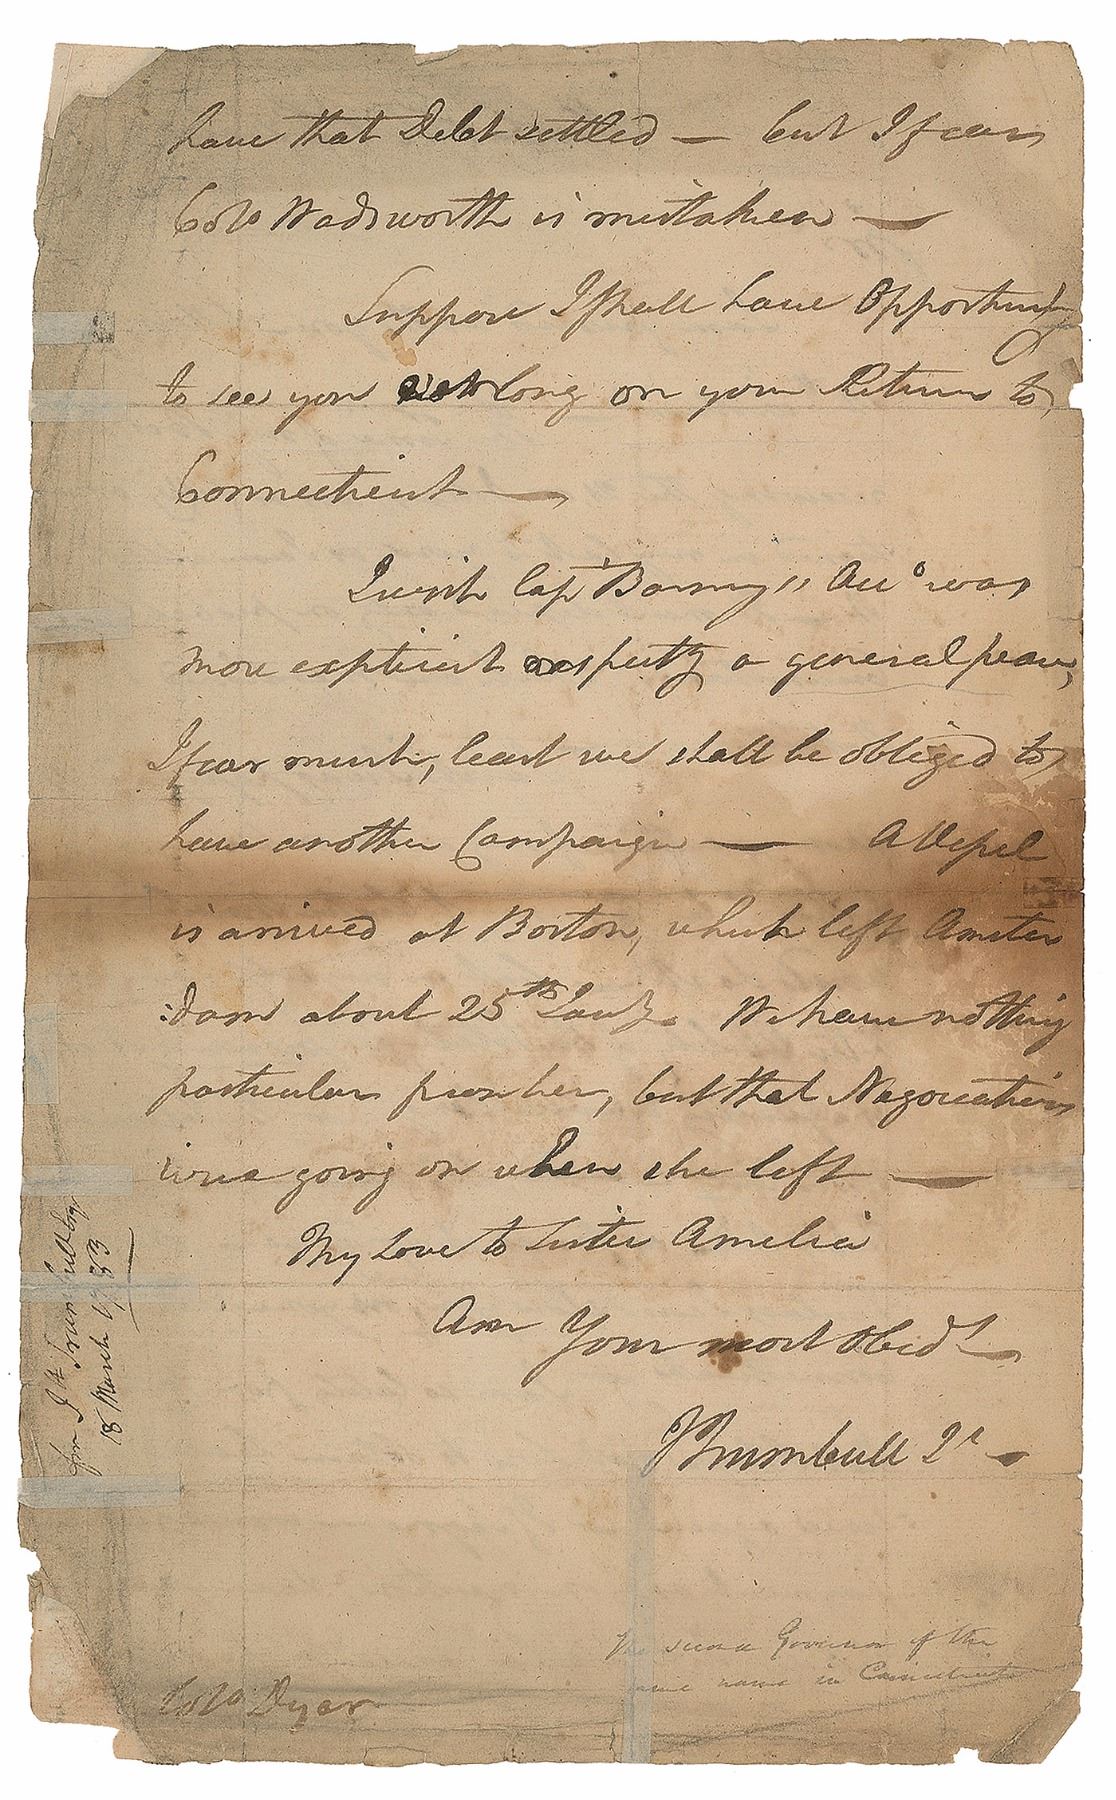 have that Debt settled — but I fear
Colo Wadsworth is mistaken —
Suppose I shall have Opportunity
to see you long on your Return to
Connecticut —
I wish Capt Barney's Acco was
more explicit respectg a general peace,
I fear much, least we shall be obliged to
have another Campaign — A Vessel
is arrived at Boston, which left Amster
:dam about 25th Jany. We have nothing
particular from her, but that Negociations
were going on when she left —
My Love to Sister Amelia
Am Your most Obedt —
J Trumbull Jr —
Colo Dyer
The second Governor of the
same name in Connecticut
from J Trumbull Esqr
18 March 1783